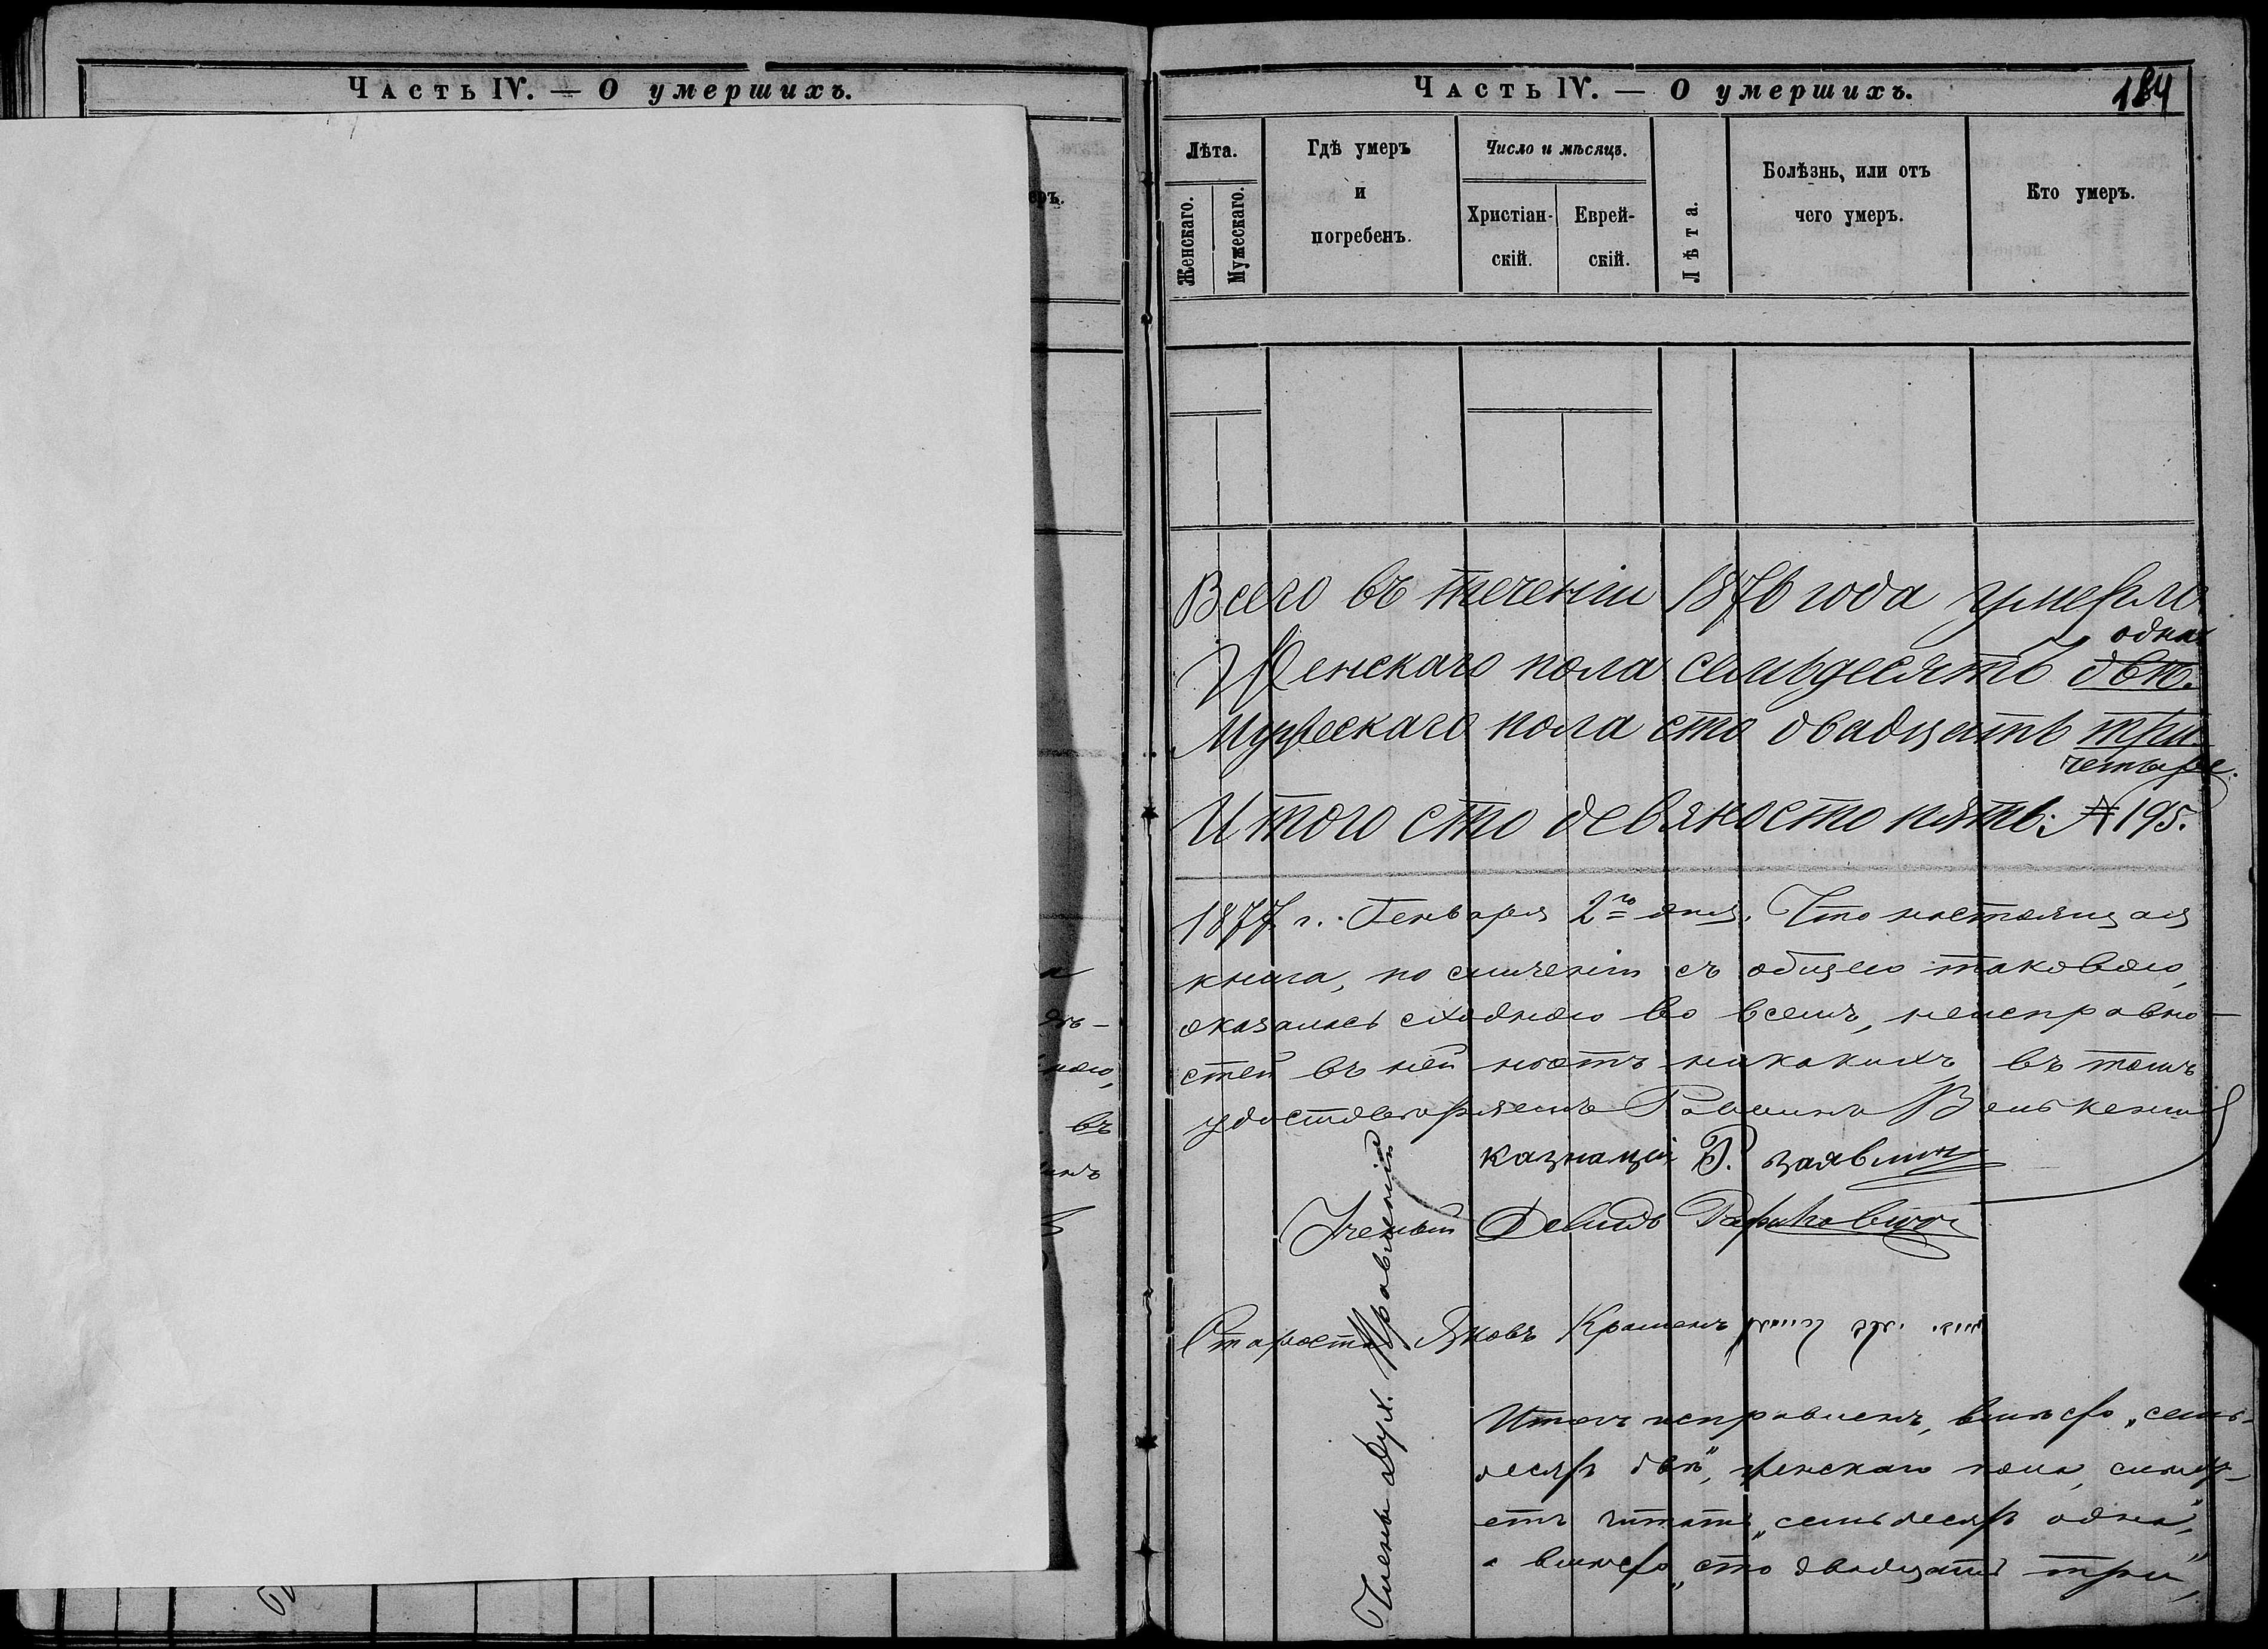 Часть IV. — О умершихъ.
еръ.
въ
Часть IV. — О умершихъ.
184
Лѣта.
Женскаго.
Мужескаго.
Гдѣ умеръ
и
погребенъ.
Число и мѣсяцъ.
Христіан-
скій.
Еврей-
скій.
Лѣта.
Болѣзнь, или отъ
чего умеръ.
Кто умеръ.
Всего въ теченіи 1876 года умерло
одна
Женскаго пола семьдесятъ двѣ.
Мужескаго пола сто двадцать три
четыре.
Итого сто девяносто пять: № 195.
1877 г. Генваря 2го дня. Что настоящая
книга, по сличеніи съ общею таковою,
оказалась сходною во всемъ, неисправно-
стей въ ней нѣтъ никакихъ, въ томъ
удостовѣряемъ Раввинъ
казначей
Ученый Давидъ
Староста Яковъ
Члены Дух. Правленія
Итогъ исправленъ, вмѣсто „семь-
десятъ двѣ", женскаго пола, слѣду-
етъ читать „семьдесятъ одна",
а вмѣсто „сто двадцать три",